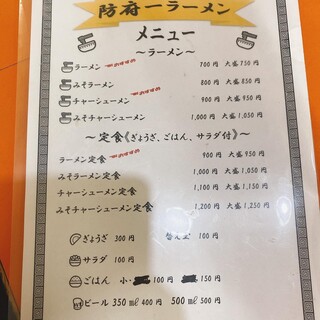 防府一ラーメン
メニュー
～ラーメン～
ラーメン おすすめ 700円 大盛750円
みそラーメン 800円 大盛850円
チャーシューメン おすすめ 900円 大盛950円
みそチャーシューメン 1,000円 大盛1,050円
～定食《ぎょうざ、ごはん、サラダ付》～
ラーメン定食 おすすめ 900円 大盛950円
みそラーメン定食 1,000円 大盛1,050円
チャーシューメン定食 1,100円 大盛1,150円
みそチャーシューメン定食 1,200円 大盛1,250円
ぎょうざ 300円 替え玉 100円
サラダ 100円
ごはん 小・ 100円 150円
ビール 350㎖ 400円 500㎖ 500円